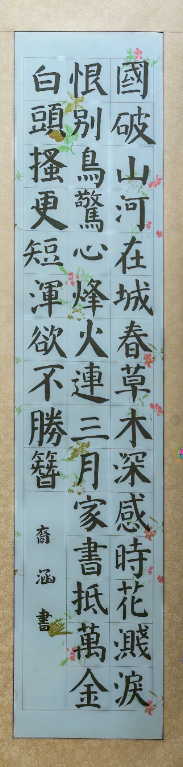 國破山河在城春草木深感時花濺淚
恨別鳥驚心烽火連三月家書抵萬金
白頭搔更短渾欲不勝簪
涵書